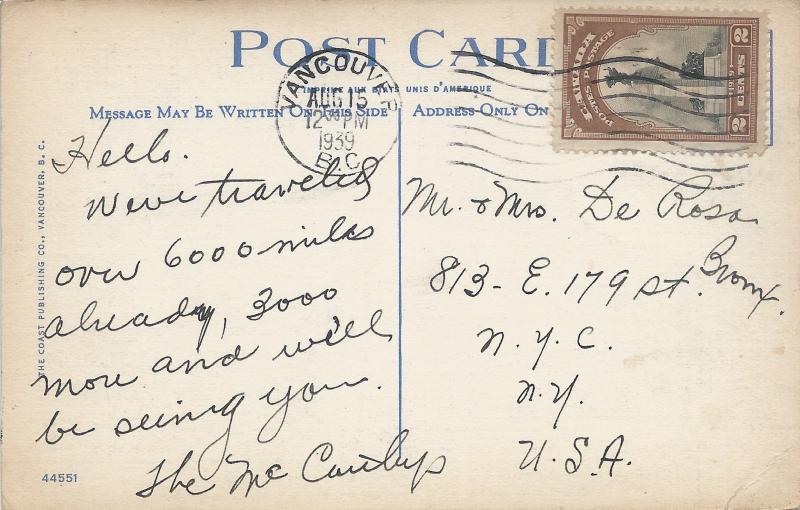 POST CARD
IMPRIMÉ AUX ETATS UNIS D'AMERIQUE
MESSAGE MAY BE WRITTEN ON THIS SIDE
ADDRESS ONLY ON
VANCOUVER
AUG 15
12 PM
1939
B.C.
CANADA
POSTES POSTAGE
1939
2 CENTS 2
Hello.
Weve traveled
over 6000 miles
already, 3000
more and we'll
be seeing you.
The Mc
Mr. & Mrs. De Rosa
813 - E. 179 St. Bronx.
N.Y.C.
N.Y.
U.S.A.
THE COAST PUBLISHING CO., VANCOUVER, B. C.
44551